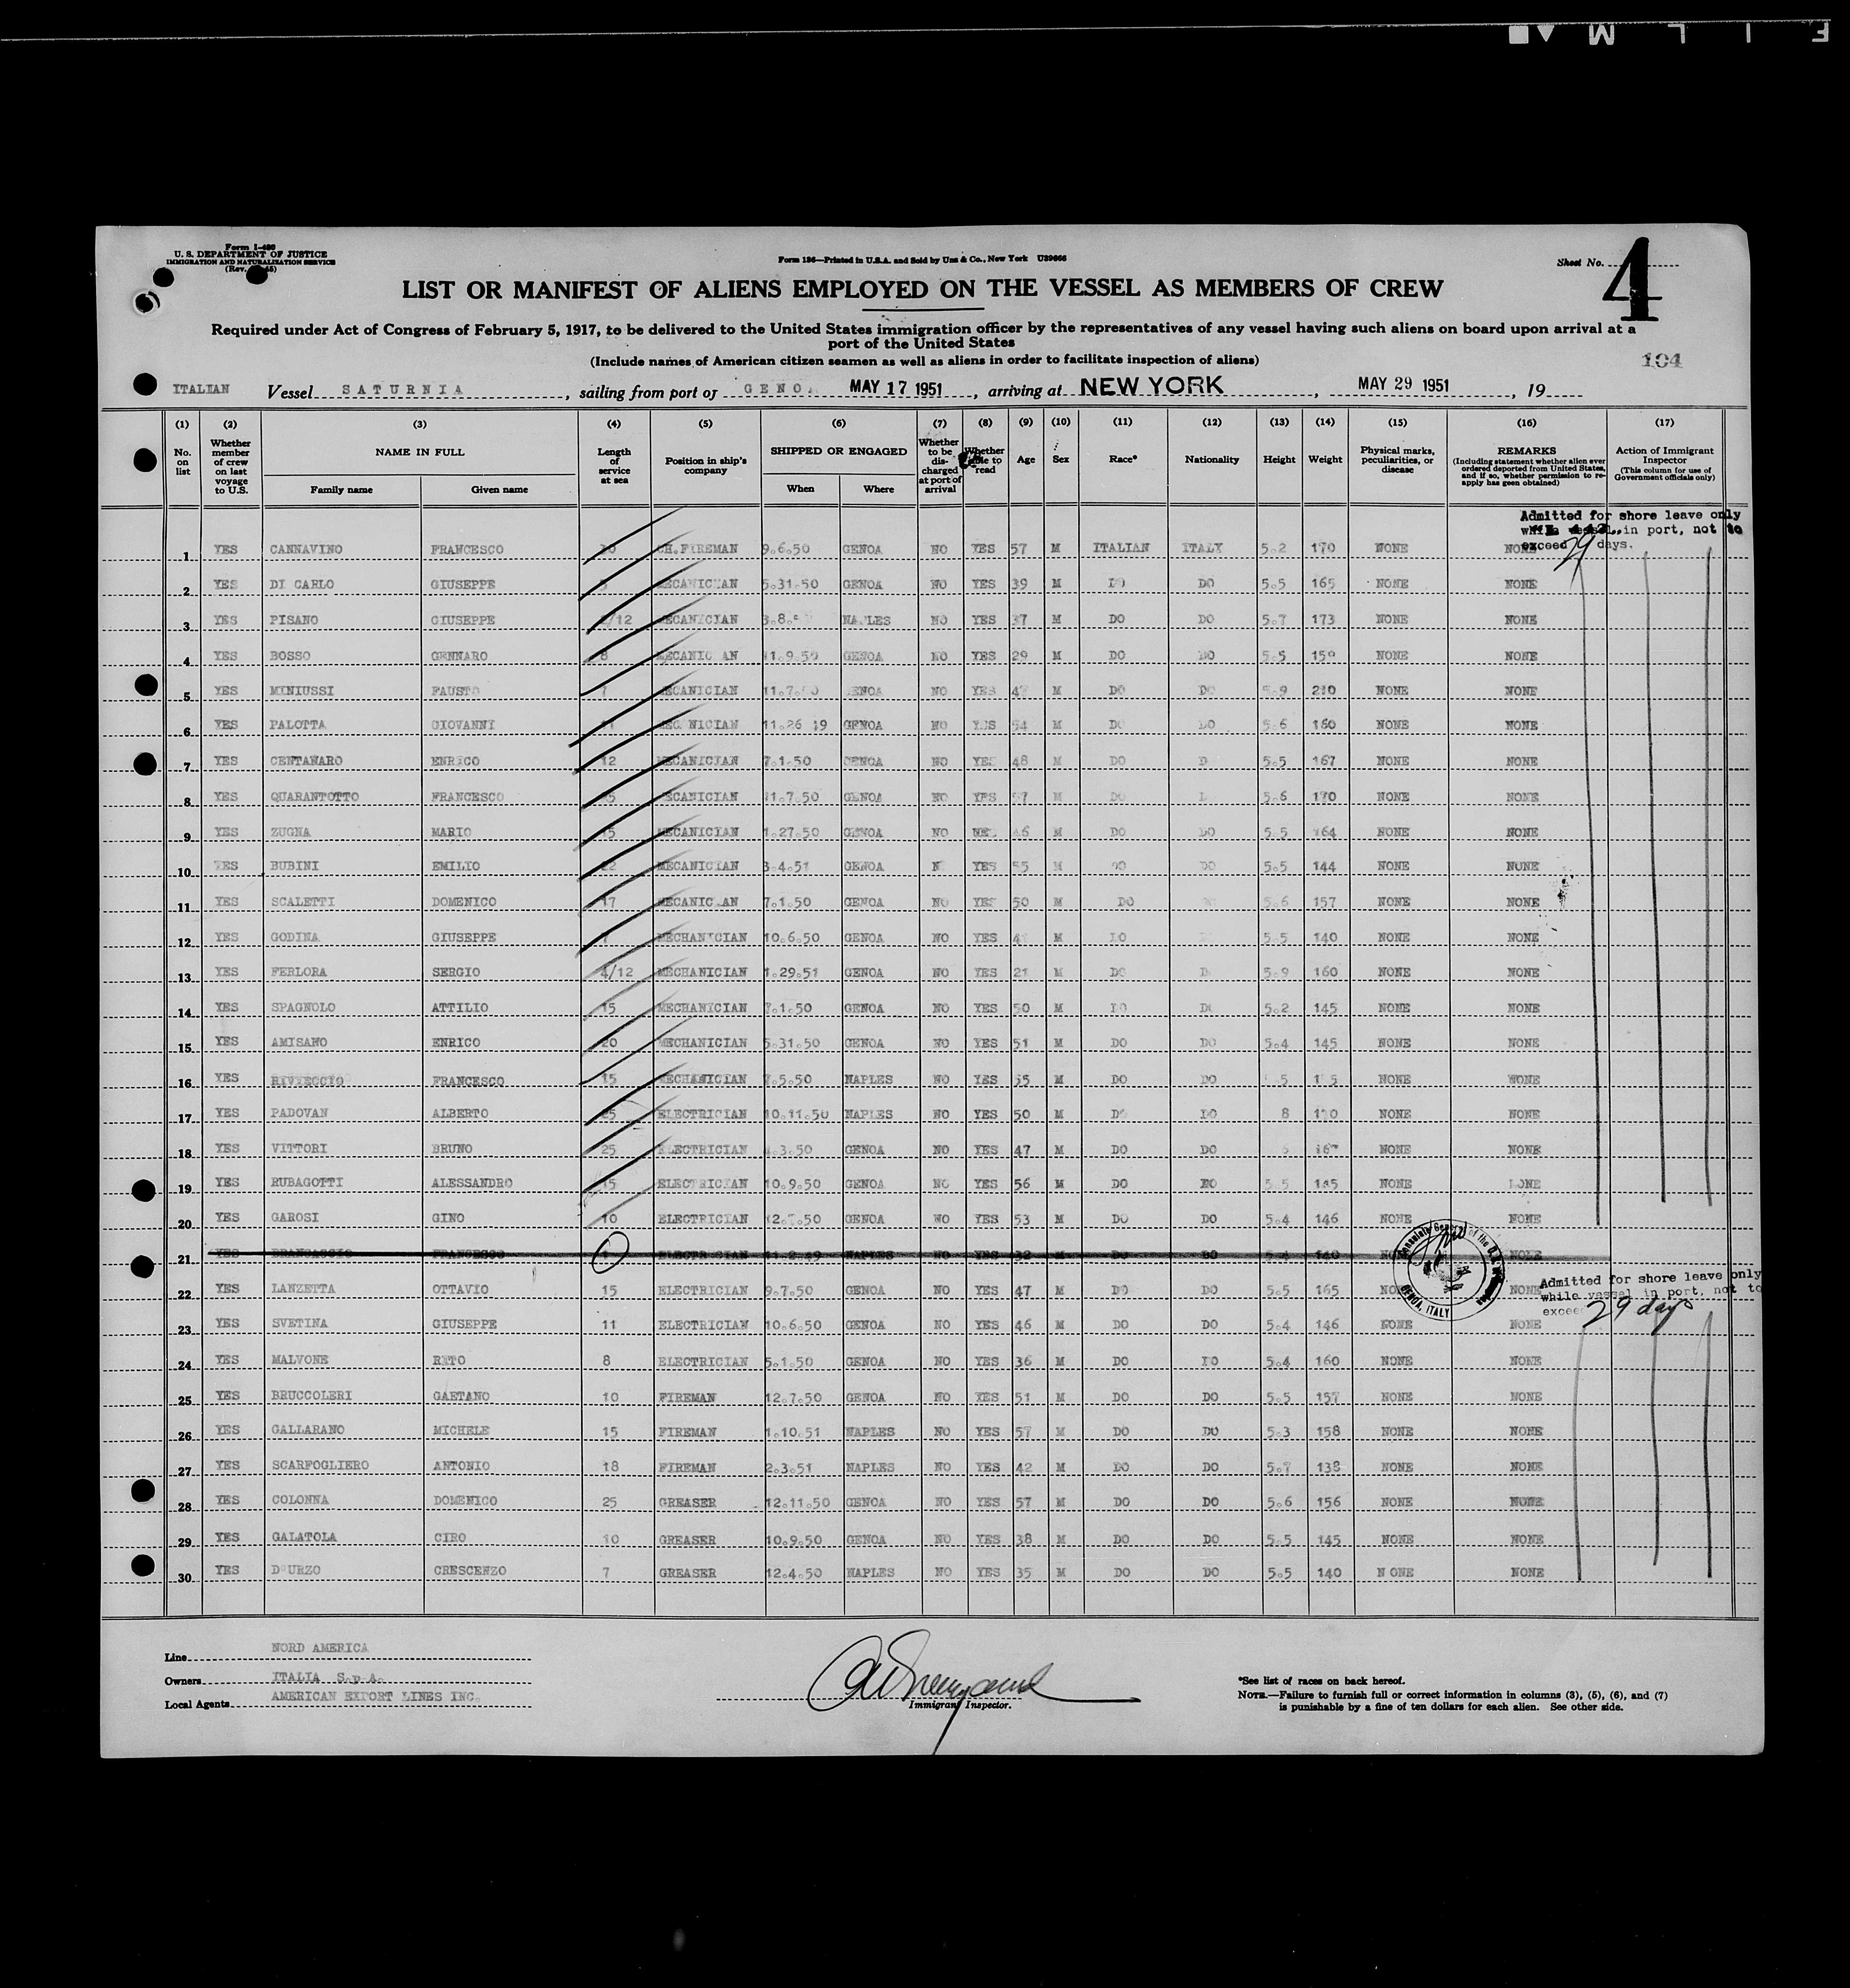 F I L M
Form I-480
U. S. DEPARTMENT OF JUSTICE
IMMIGRATION AND NATURALIZATION SERVICE
(Rev.
Form 186—Printed in U.S.A. and Sold by Unz & Co., New York U39666
Sheet No. 4
LIST OR MANIFEST OF ALIENS EMPLOYED ON THE VESSEL AS MEMBERS OF CREW
Required under Act of Congress of February 5, 1917, to be delivered to the United States immigration officer by the representatives of any vessel having such aliens on board upon arrival at a
port of the United States
(Include names of American citizen seamen as well as aliens in order to facilitate inspection of aliens)
104
ITALIAN Vessel SATURNIA, sailing from port of GENO MAY 17 1951, arriving at NEW YORK, MAY 29 1951, 19
(1) (2) (3) (4) (5) (6) (7) (8) (9) (10) (11) (12) (13) (14) (15) (16) (17)
No. on list Whether member of crew on last voyage to U.S. NAME IN FULL Family name Given name Length of service at sea Position in ship's company SHIPPED OR ENGAGED When Where Whether to be discharged at port of arrival Whether able to read Age Sex Race* Nationality Height Weight Physical marks, peculiarities, or disease REMARKS (Including statement whether alien ever ordered deported from United States, and if so, whether permission to re-apply has been obtained) Action of Immigrant Inspector (This column for use of Government officials only)
Admitted for shore leave only
while vessel in port, not to
exceed 29 days.
1 YES CANNAVINO FRANCESCO CH.FIREMAN 9.6.50 GENOA NO YES 57 M ITALIAN ITALY 5.2 170 NONE NONE
2 YES DI CARLO GIUSEPPE MECANICIAN 5.31.50 GENOA NO YES 39 M DO DO 5.5 165 NONE NONE
3 YES PISANO GIUSEPPE /12 MECANICIAN 3.8. NAPLES NO YES 37 M DO DO 5.7 173 NONE NONE
4 YES BOSSO GENNARO 8 MECANICIAN 11.9.50 GENOA NO YES 29 M DO DO 5.5 159 NONE NONE
5 YES MINIUSSI FAUSTO 7 MECANICIAN 11.7.50 GENOA NO YES M DO DO 5.9 210 NONE NONE
6 YES PALOTTA GIOVANNI MECANICIAN 11.26 GENOA NO YES 54 M DO DO 5.6 160 NONE NONE
7 YES CENTANARO ENRICO 12 MECANICIAN 7.1.50 GENOA NO YES 48 M DO D 5.5 167 NONE NONE
8 YES QUARANTOTTO FRANCESCO MECANICIAN 11.7.50 GENOA NO YES 57 M DO 5.6 170 NONE NONE
9 YES ZUGNA MARIO 15 MECANICIAN 1.27.50 GENOA NO YES 46 M DO DO 5.5 164 NONE NONE
10 YES BUBINI EMILIO 22 MECANICIAN 3.4.51 GENOA N YES 55 M DO DO 5.5 144 NONE NONE
11 YES SCALETTI DOMENICO 17 MECANICIAN 7.1.50 GENOA NO YES 50 M DO 5.6 157 NONE NONE
12 YES GODINA GIUSEPPE 7 MECHANICIAN 10.6.50 GENOA NO YES M DO 5.5 140 NONE NONE
13 YES FERLORA SERGIO 4/12 MECHANICIAN 1.29.51 GENOA NO YES 21 M DO D 5.9 160 NONE NONE
14 YES SPAGNOLO ATTILIO 15 MECHANICIAN 7.1.50 GENOA NO YES 50 M DO DO 5.2 145 NONE NONE
15 YES AMISANO ENRICO 20 MECHANICIAN 5.31.50 GENOA NO YES 51 M DO DO 5.4 145 NONE NONE
16 YES RIVIECCIO FRANCESCO 15 MECHANICIAN 7.5.50 NAPLES NO YES M DO DO 5 NONE NONE
17 YES PADOVAN ALBERTO 25 ELECTRICIAN 10.11.50 NAPLES NO YES 50 M DO DO 8 NONE NONE
18 YES VITTORI BRUNO 25 ELECTRICIAN .3.50 GENOA NO YES 47 M DO DO NONE NONE
19 YES RUBAGOTTI ALESSANDRO 15 ELECTRICIAN 10.9.50 GENOA NO YES 56 M DO DO 5.5 145 NONE NONE
20 YES GAROSI GINO 10 ELECTRICIAN 12.7.50 GENOA NO YES 53 M DO DO 5.4 146 NONE NONE
21 YES BRANCACCIO FRANCESCO ELECTRICIAN 11.2.49 NAPLES NO YES 32 M DO DO 5.4 140 NONE NONE
22 YES LANZETTA OTTAVIO 15 ELECTRICIAN 9.7.50 GENOA NO YES 47 M DO DO 5.5 165 NONE NONE
GENOA, ITALY
Admitted for shore leave only
while vessel in port, not to
exceed 29 days
23 YES SVETINA GIUSEPPE 11 ELECTRICIAN 10.6.50 GENOA NO YES 46 M DO DO 5.4 146 NONE NONE
24 YES MALVONE RITO 8 ELECTRICIAN 5.1.50 GENOA NO YES 36 M DO DO 5.4 160 NONE NONE
25 YES BRUCCOLERI GAETANO 10 FIREMAN 12.7.50 GENOA NO YES 51 M DO DO 5.5 157 NONE NONE
26 YES GALLARANO MICHELE 15 FIREMAN 1.10.51 NAPLES NO YES 57 M DO DO 5.3 158 NONE NONE
27 YES SCARFOGLIERO ANTONIO 18 FIREMAN 2.3.51 NAPLES NO YES 42 M DO DO 5.7 138 NONE NONE
28 YES COLONNA DOMENICO 25 GREASER 12.11.50 GENOA NO YES 57 M DO DO 5.6 156 NONE NONE
29 YES GALATOLA CIRO 10 GREASER 10.9.50 GENOA NO YES 38 M DO DO 5.5 145 NONE NONE
30 YES D'URZO CRESCENZO 7 GREASER 12.4.50 NAPLES NO YES 35 M DO DO 5.5 140 N ONE NONE
Line NORD AMERICA
Owners ITALIA S.p.A.
Local Agents AMERICAN EXPORT LINES INC.
Immigrant Inspector.
*See list of races on back hereof.
NOTE.—Failure to furnish full or correct information in columns (3), (5), (6), and (7)
is punishable by a fine of ten dollars for each alien. See other side.